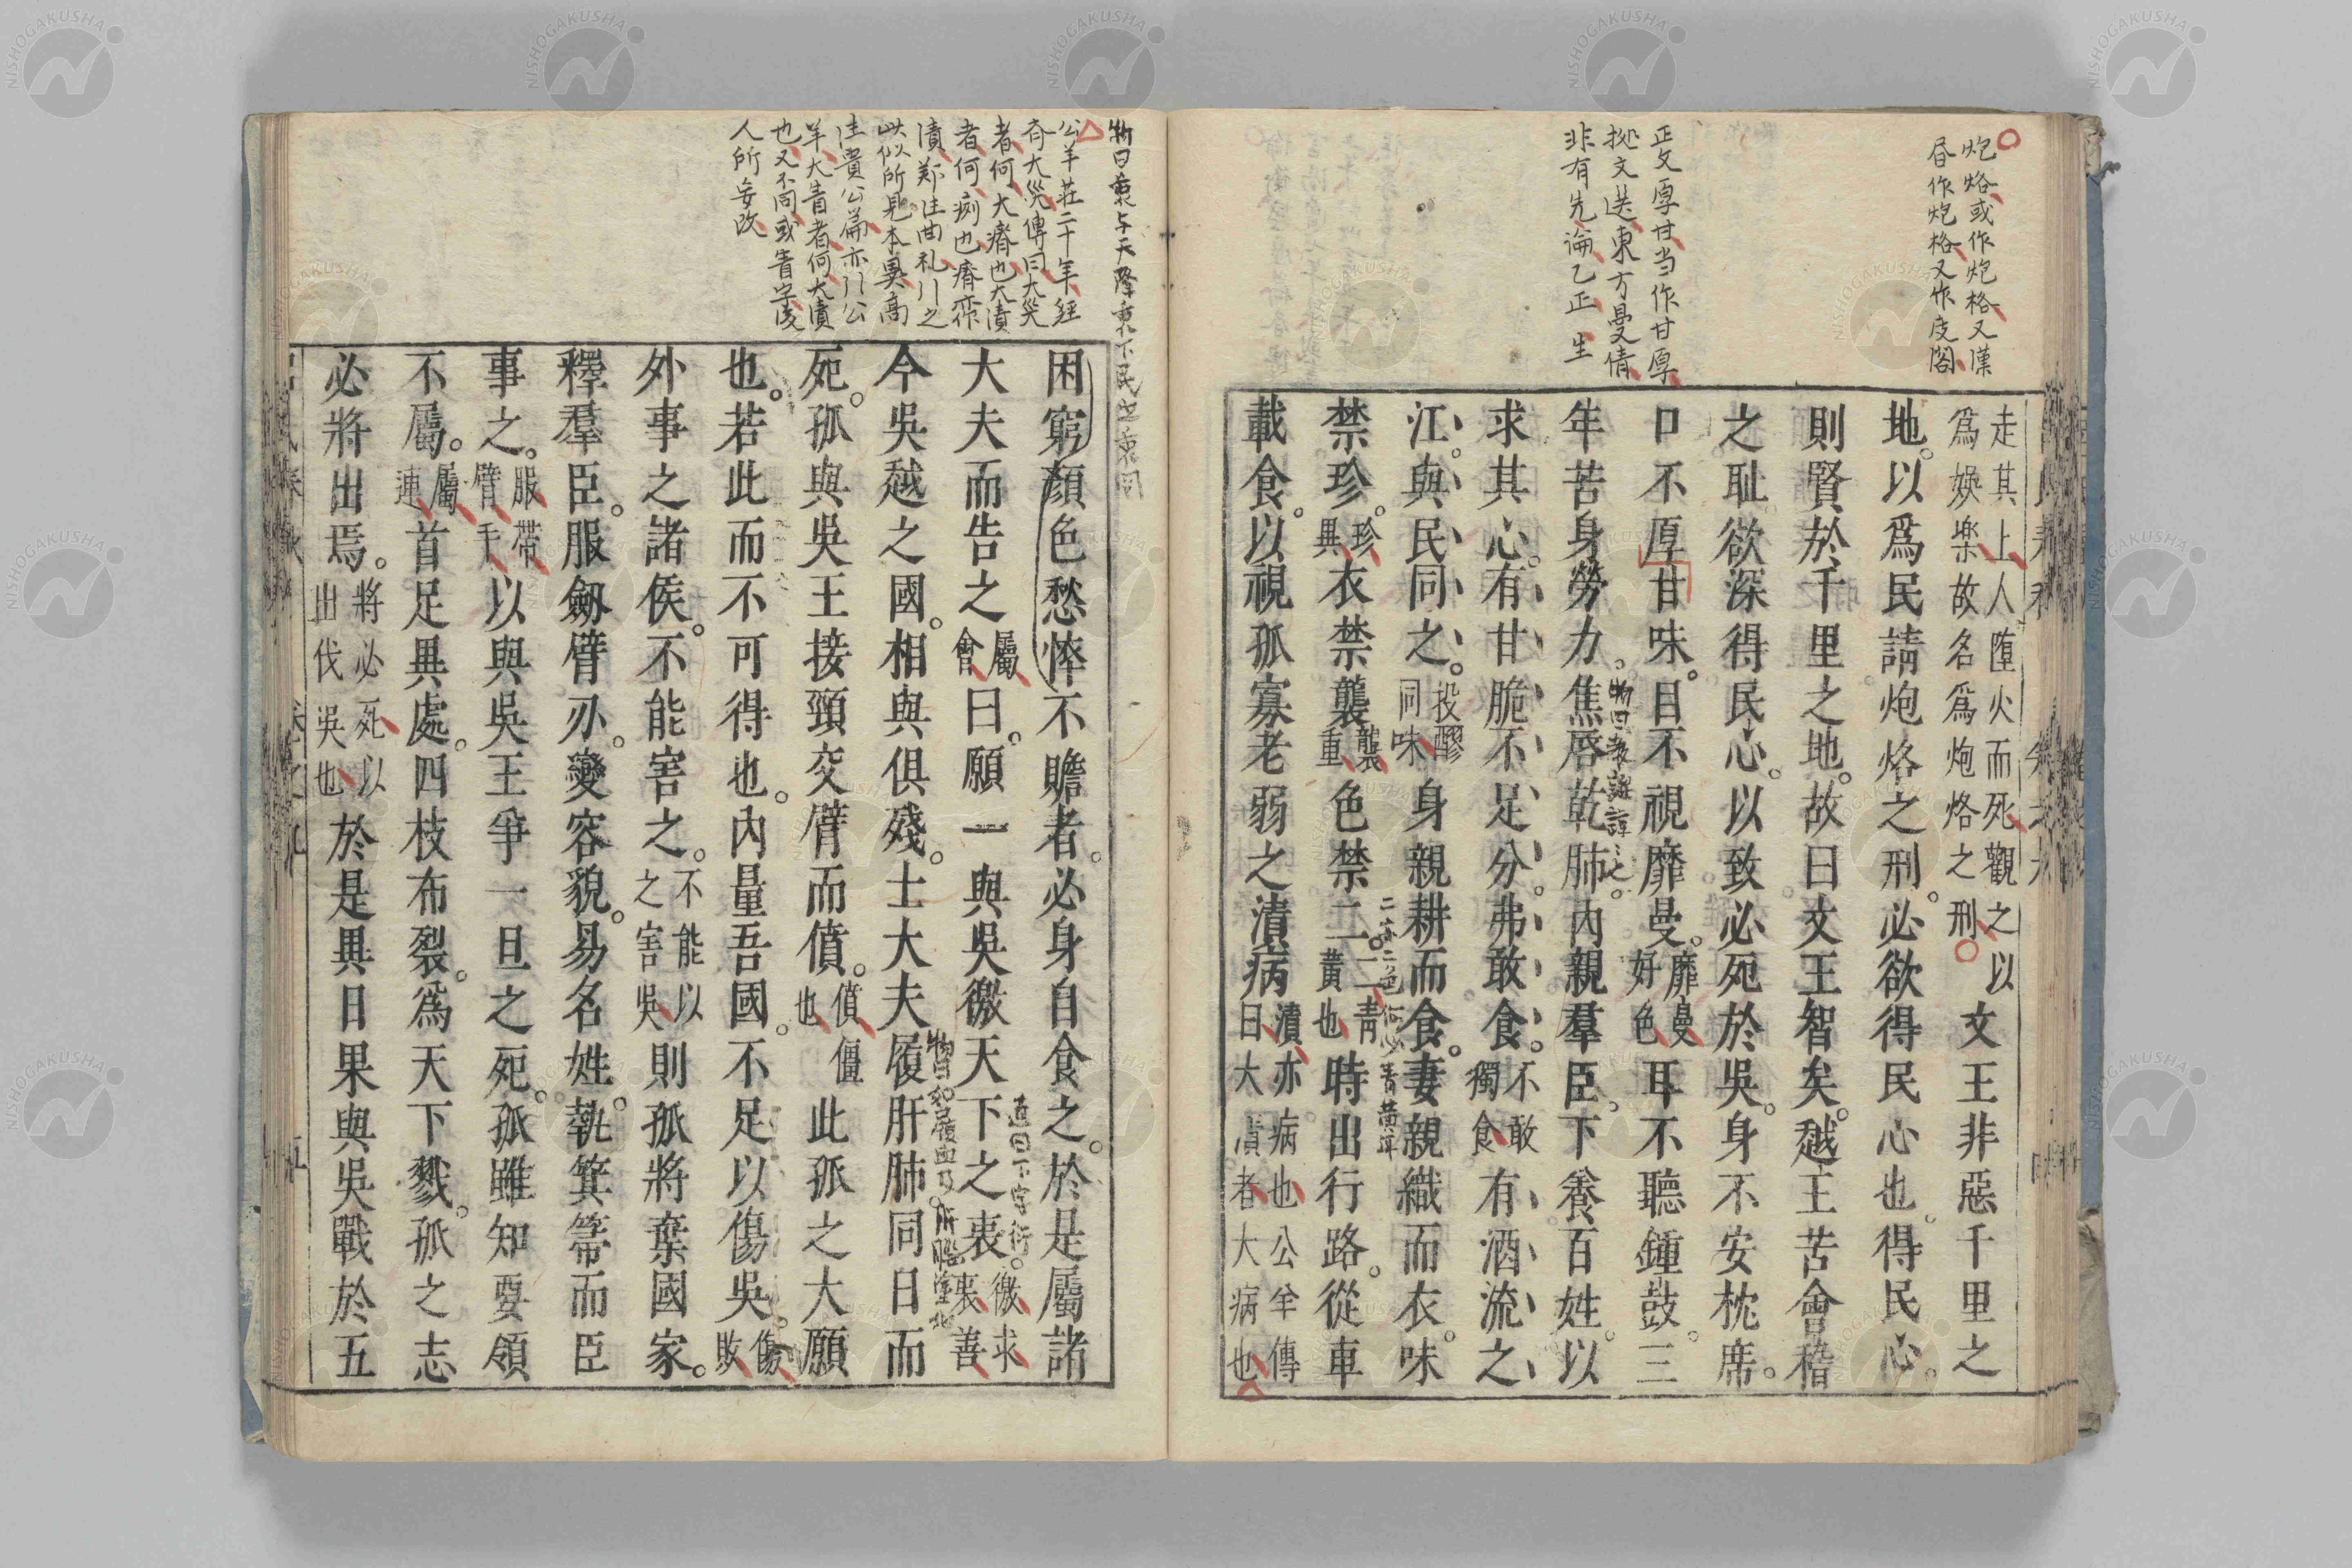 炮烙或作炮格又漢
昏作炮格又作庋閣
正文厚甘当作甘厚
拠文选東方曼倩
非有先論乙正 生
走其上人墮火而死觀之以
爲娛樂故名爲炮烙之刑
文王非惡千里之
地以爲民請炮烙之刑必欲得民心也得民心
則賢於千里之地故曰文王智矣越王苦會稽
之耻欲深得民心以致必死於吳身不安枕席
口不厚甘味目不視靡曼
靡曼
好色
耳不聽鍾鼓三
年苦身勞力焦唇乾肺內親羣臣下養百姓以
求其心有甘脆不足分弗敢食
不敢
獨食
有酒流之
江與民同之
投醪
同味
身親耕而食妻親織而衣味
禁珍
珍
異
衣禁襲
襲
重
色禁二
二青
黃也
時出行路從車
載食以視孤寡老弱之漬病
漬亦病也公羊傳
曰大漬者大病也
物曰衷与天降衷下民之衷同
公羊莊二十年經
斉大災傳曰大災
者何大瘠也大漬
者何㾐也瘠
漬鄭注曲礼引之
此似所見本異高
注貴公篇亦引公
羊大眚者何大漬
也又不同或眚字後
人所妄改
困窮顏色愁悴不贍者必身自食之於是屬諸
大夫而告之
屬
會
曰願一與吳徼天下之衷
徼求
衷善
今吳越之國相與俱殘士大夫履肝肺同日而
死孤與吳王接頸交臂而僨
僨僵
也
此孤之大願
也若此而不可得也內量吾國不足以傷吳
傷
敗
外事之諸侯不能害之
不能以
之害吳
則孤將棄國家
釋羣臣服劒臂刃變容貌易名姓執箕箒而臣
事之
服帶
臂手
以與吳王爭一旦之死孤雖知要領
不屬
屬
連
首足異處四枝布裂爲天下戮孤之志
必將出焉
將必死以
出伐吳也
於是異日果與吳戰於五